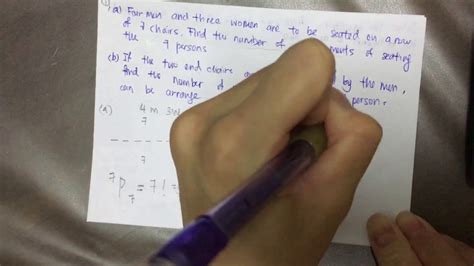 a) Four men and three women are to be seated on a row
of 7 chairs. Find the number of ments of seating
the 7 persons
(b) If the two end chairs by the men,
find the number person.
can be arrange
(a) 4m 3w
7
7
⁷P₇ = 7! =